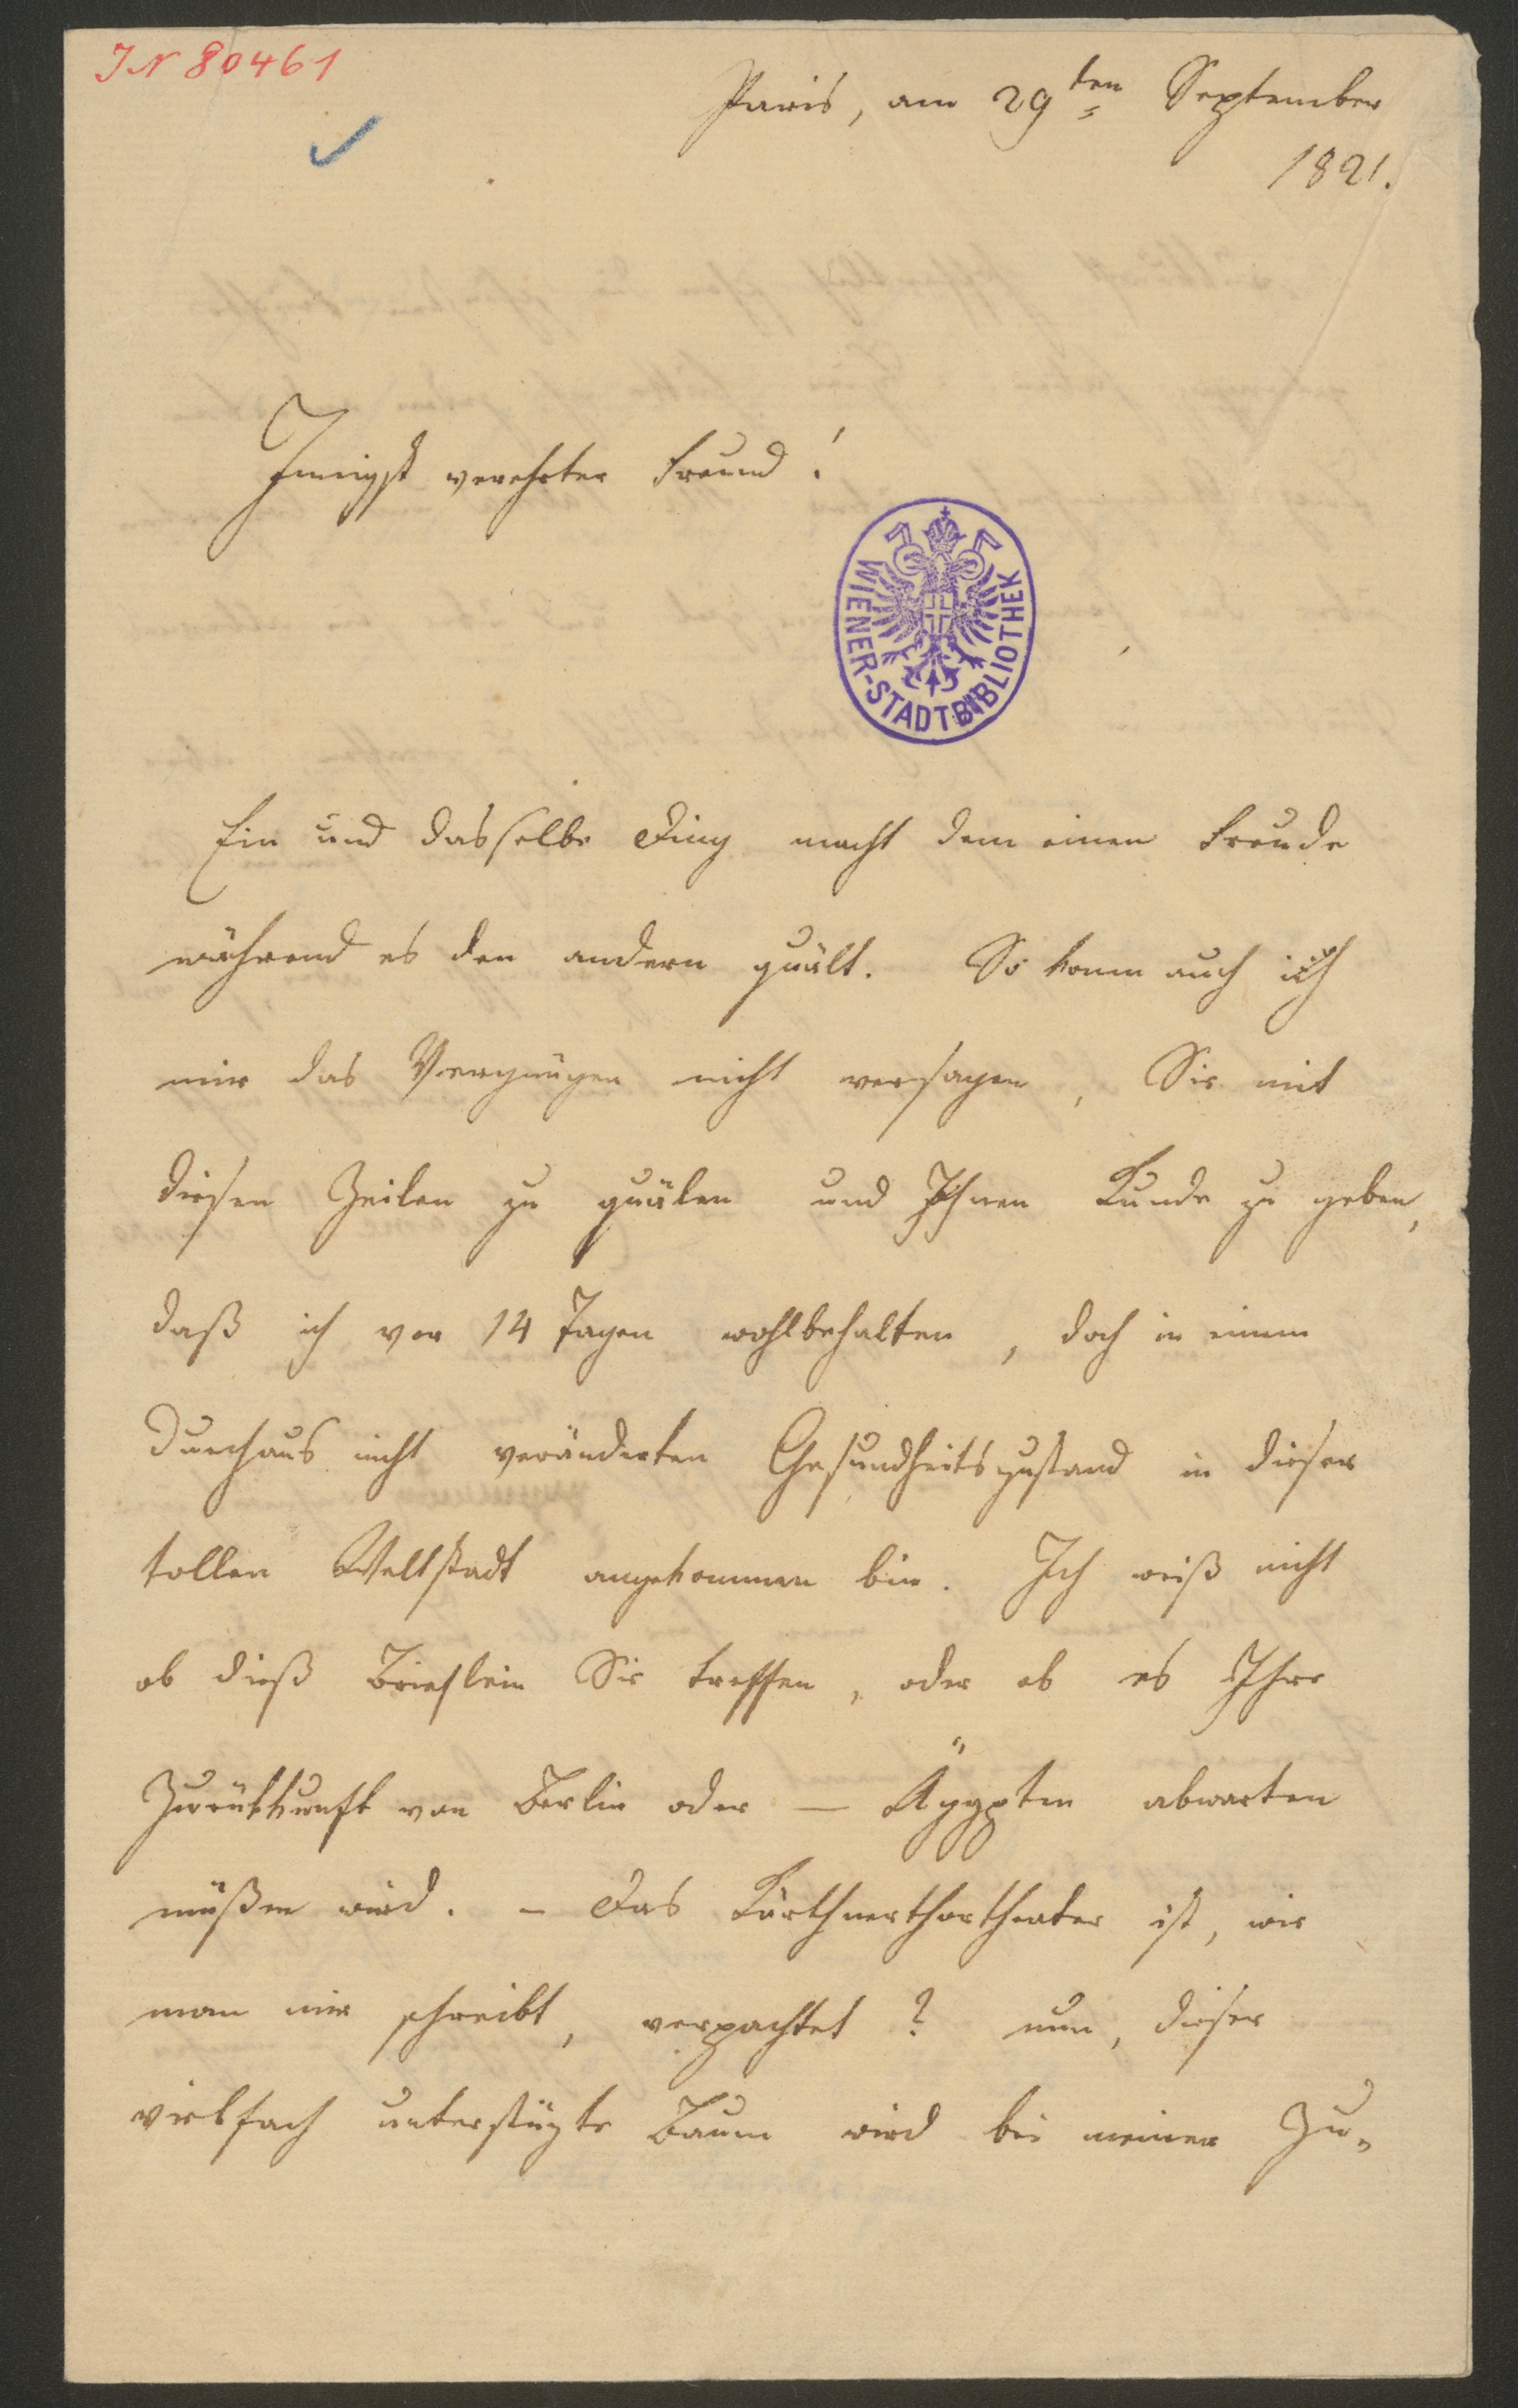 IN 80461
Paris, am 29ten September
1821.
Innigst verehrter Freund!
WIENER-STADTBIBLIOTHEK
Ein und dasselbe Ding macht dem einen Freude
während es den andern quält. So kann auch ich
mir das Vergnügen nicht versagen, Sie mit
diesen Zeilen zu quälen und Ihnen Kunde zu geben,
daß ich vor 14 Tagen wohlbehalten, doch in einem
durchaus nicht veränderten Gesundheitszustand in dieser
tollen Weltstadt angekommen bin. Ich weiß nicht
ob dieß Brieflein Sie treffen, oder ob es Ihre
Zurükkunft von Berlin oder — Ägypten abwarten
müßen wird. – Das Kärthnerthortheater ist, wie
man mir schreibt, verpachtet? nun, dieser
vielfach unterstüzte Baum wird bei meiner Zu„